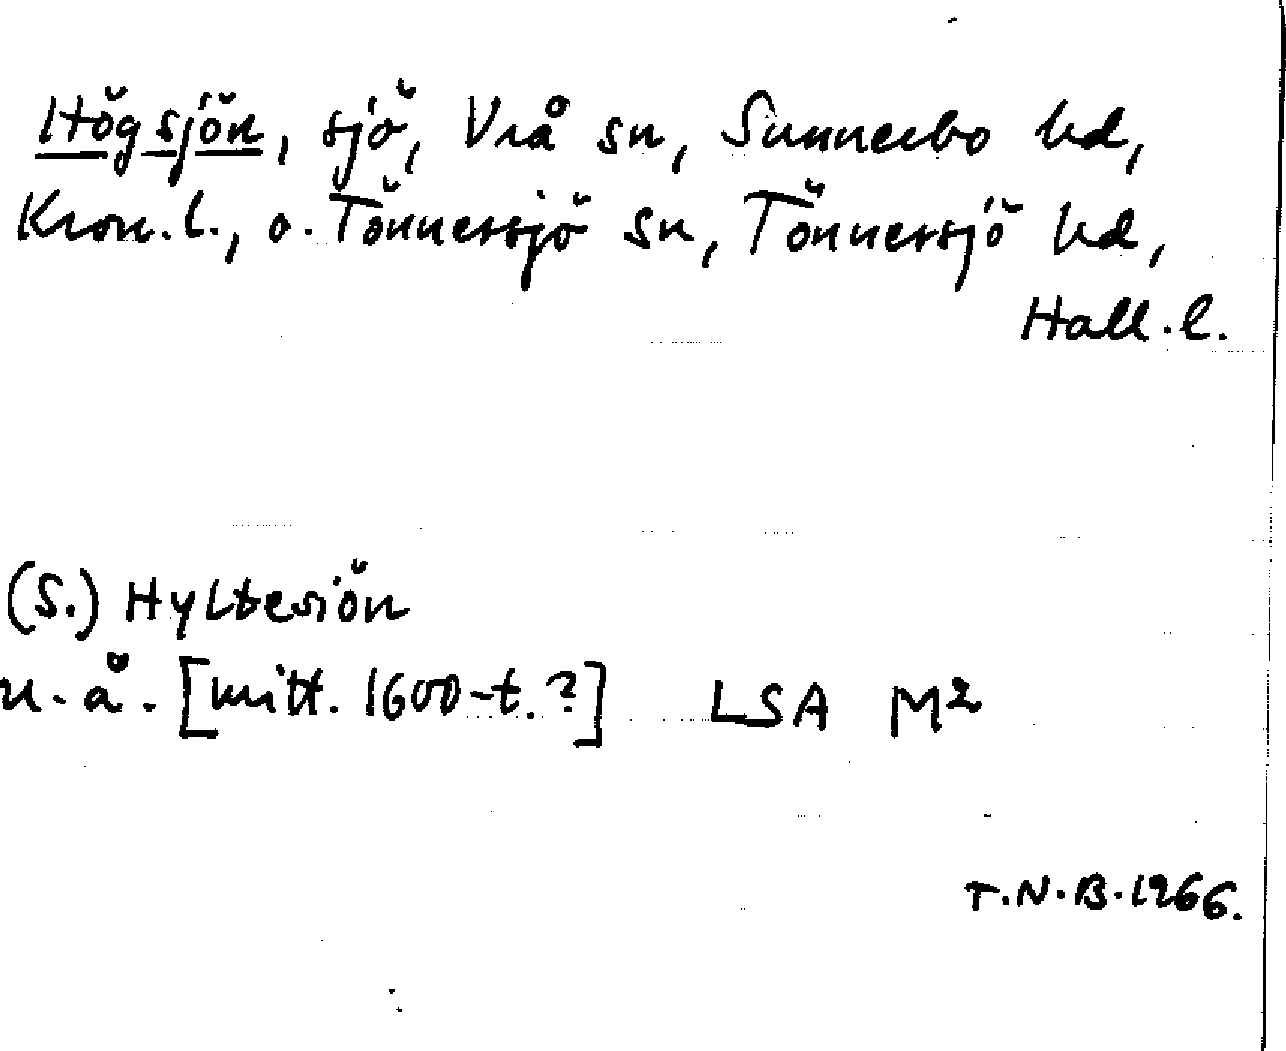 Högsjön, sjö, Vrå sn, Sunnerbo hd,
Kron. l., o. Tönnersjö sn, Tönnersjö hd,
Hall. l.
(S.) Hyltesiön
u. å. [mitt. 1600-t.?] LSA M²
T.N.B. 1966.